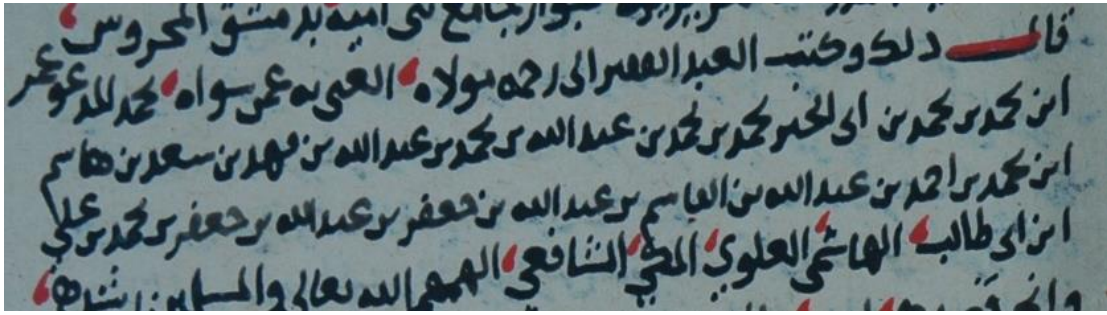 بجوار جامع بني امية بدمشق المحروس
قال ذلك وكتب العبد الفقير الى رحمة مولاه الغني به عمن سواه محمد المدعو عمر
ابن محمد بن محمد بن ابى الخير محمد بن محمد بن عبد الله بن محمد بن عبد الله بن فهد بن سعد بن هاشم
ابن محمد بن احمد بن عبد الله بن القاسم بن عبد الله بن جعفر بن عبد الله بن جعفر بن محمد بن علي
ابن ابى طالب الهاشمي العلوي المكي الشافعي الهمهم الله تعالى والمسلمين